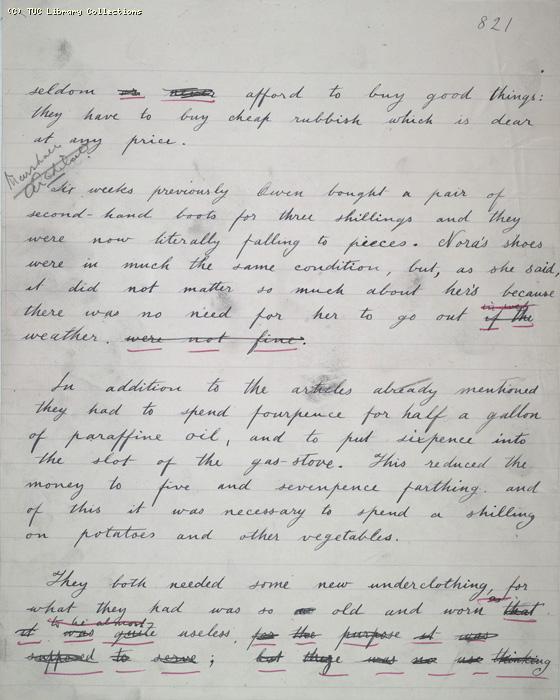 (C) TUC Library Collections
821
seldom or never afford to buy good things:
they have to buy cheap rubbish which is dear
at any price.
Marshall
Architect
Six weeks previously Owen bought a pair of
second-hand boots for three shillings and they
were now literally falling to pieces. Nora's shoes
were in much the same condition, but, as she said,
it did not matter so much about her's because
there was no need for her to go out if the
weather. were not fine.
In addition to the articles already mentioned
they had to spend fourpence for half a gallon
of paraffine oil, and to put sixpence into
the slot of the gas-stove. This reduced the
money to five and sevenpence farthing. and
of this it was necessary to spend a shilling
on potatoes and other vegetables.
They both needed some new underclothing, for
what they had was so old and worn that
to be almost
it was quite useless. for the purpose it was
supposed to serve; but there was no use thinking